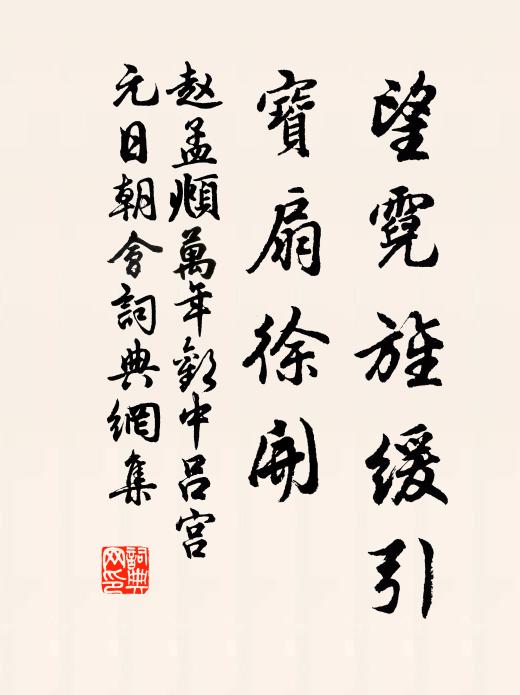 望霓旌缓引
寶扇徐開
赵孟頫萬年歡中吕宫
元日朝會詞典網集
詞典网印